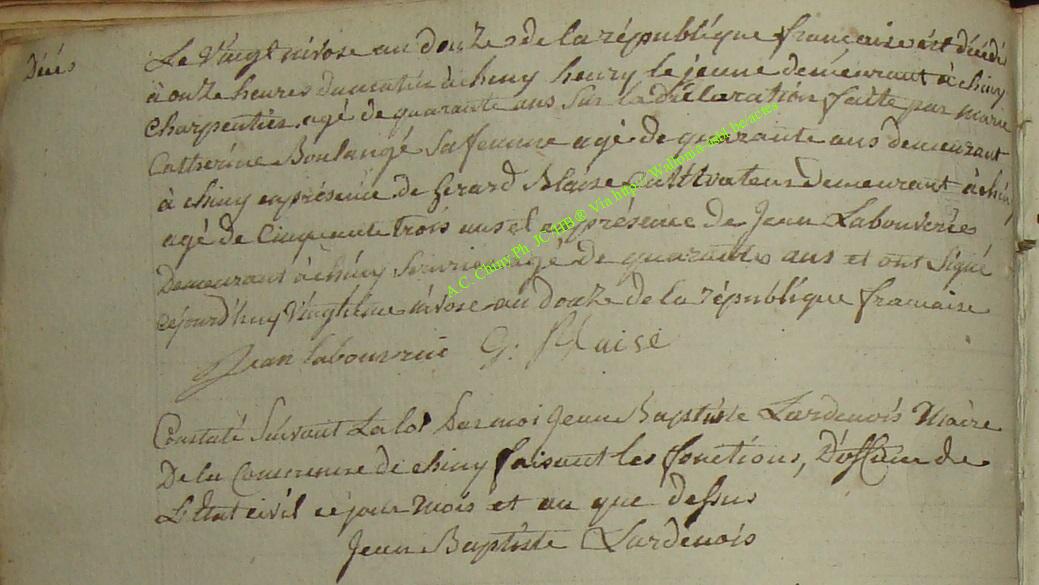 Décès
Le vingt nivose an douze de la république française est décédé
à onze heures du matin à chiny henry le jeune demeurant à chiny
charpentier agé de quarante ans sur la déclaration faite par marie
Catherine Boulangé sa femme agé de quarante ans demeurant
à chiny en présence de Gerard Blaise Cultivateur demeurant à chiny
agé de Cinquante trois ans et en présence de Jean Labouverie
Demeurant à chiny agé de quarante ans et ont signé
cejourd'huy vingtième nivose an douze de la république francaise
Jean labouverie G. Blaise
Constaté suivant La loi Par moi Jean Baptiste Lardenois Maire
De la Commune de chiny faisant les fonctions, D'officier de
L'Etat civil ce jour Mois et an que dessus
Jean Baptiste Lardenois
A.C. Chiny Ph. JC HB® Via